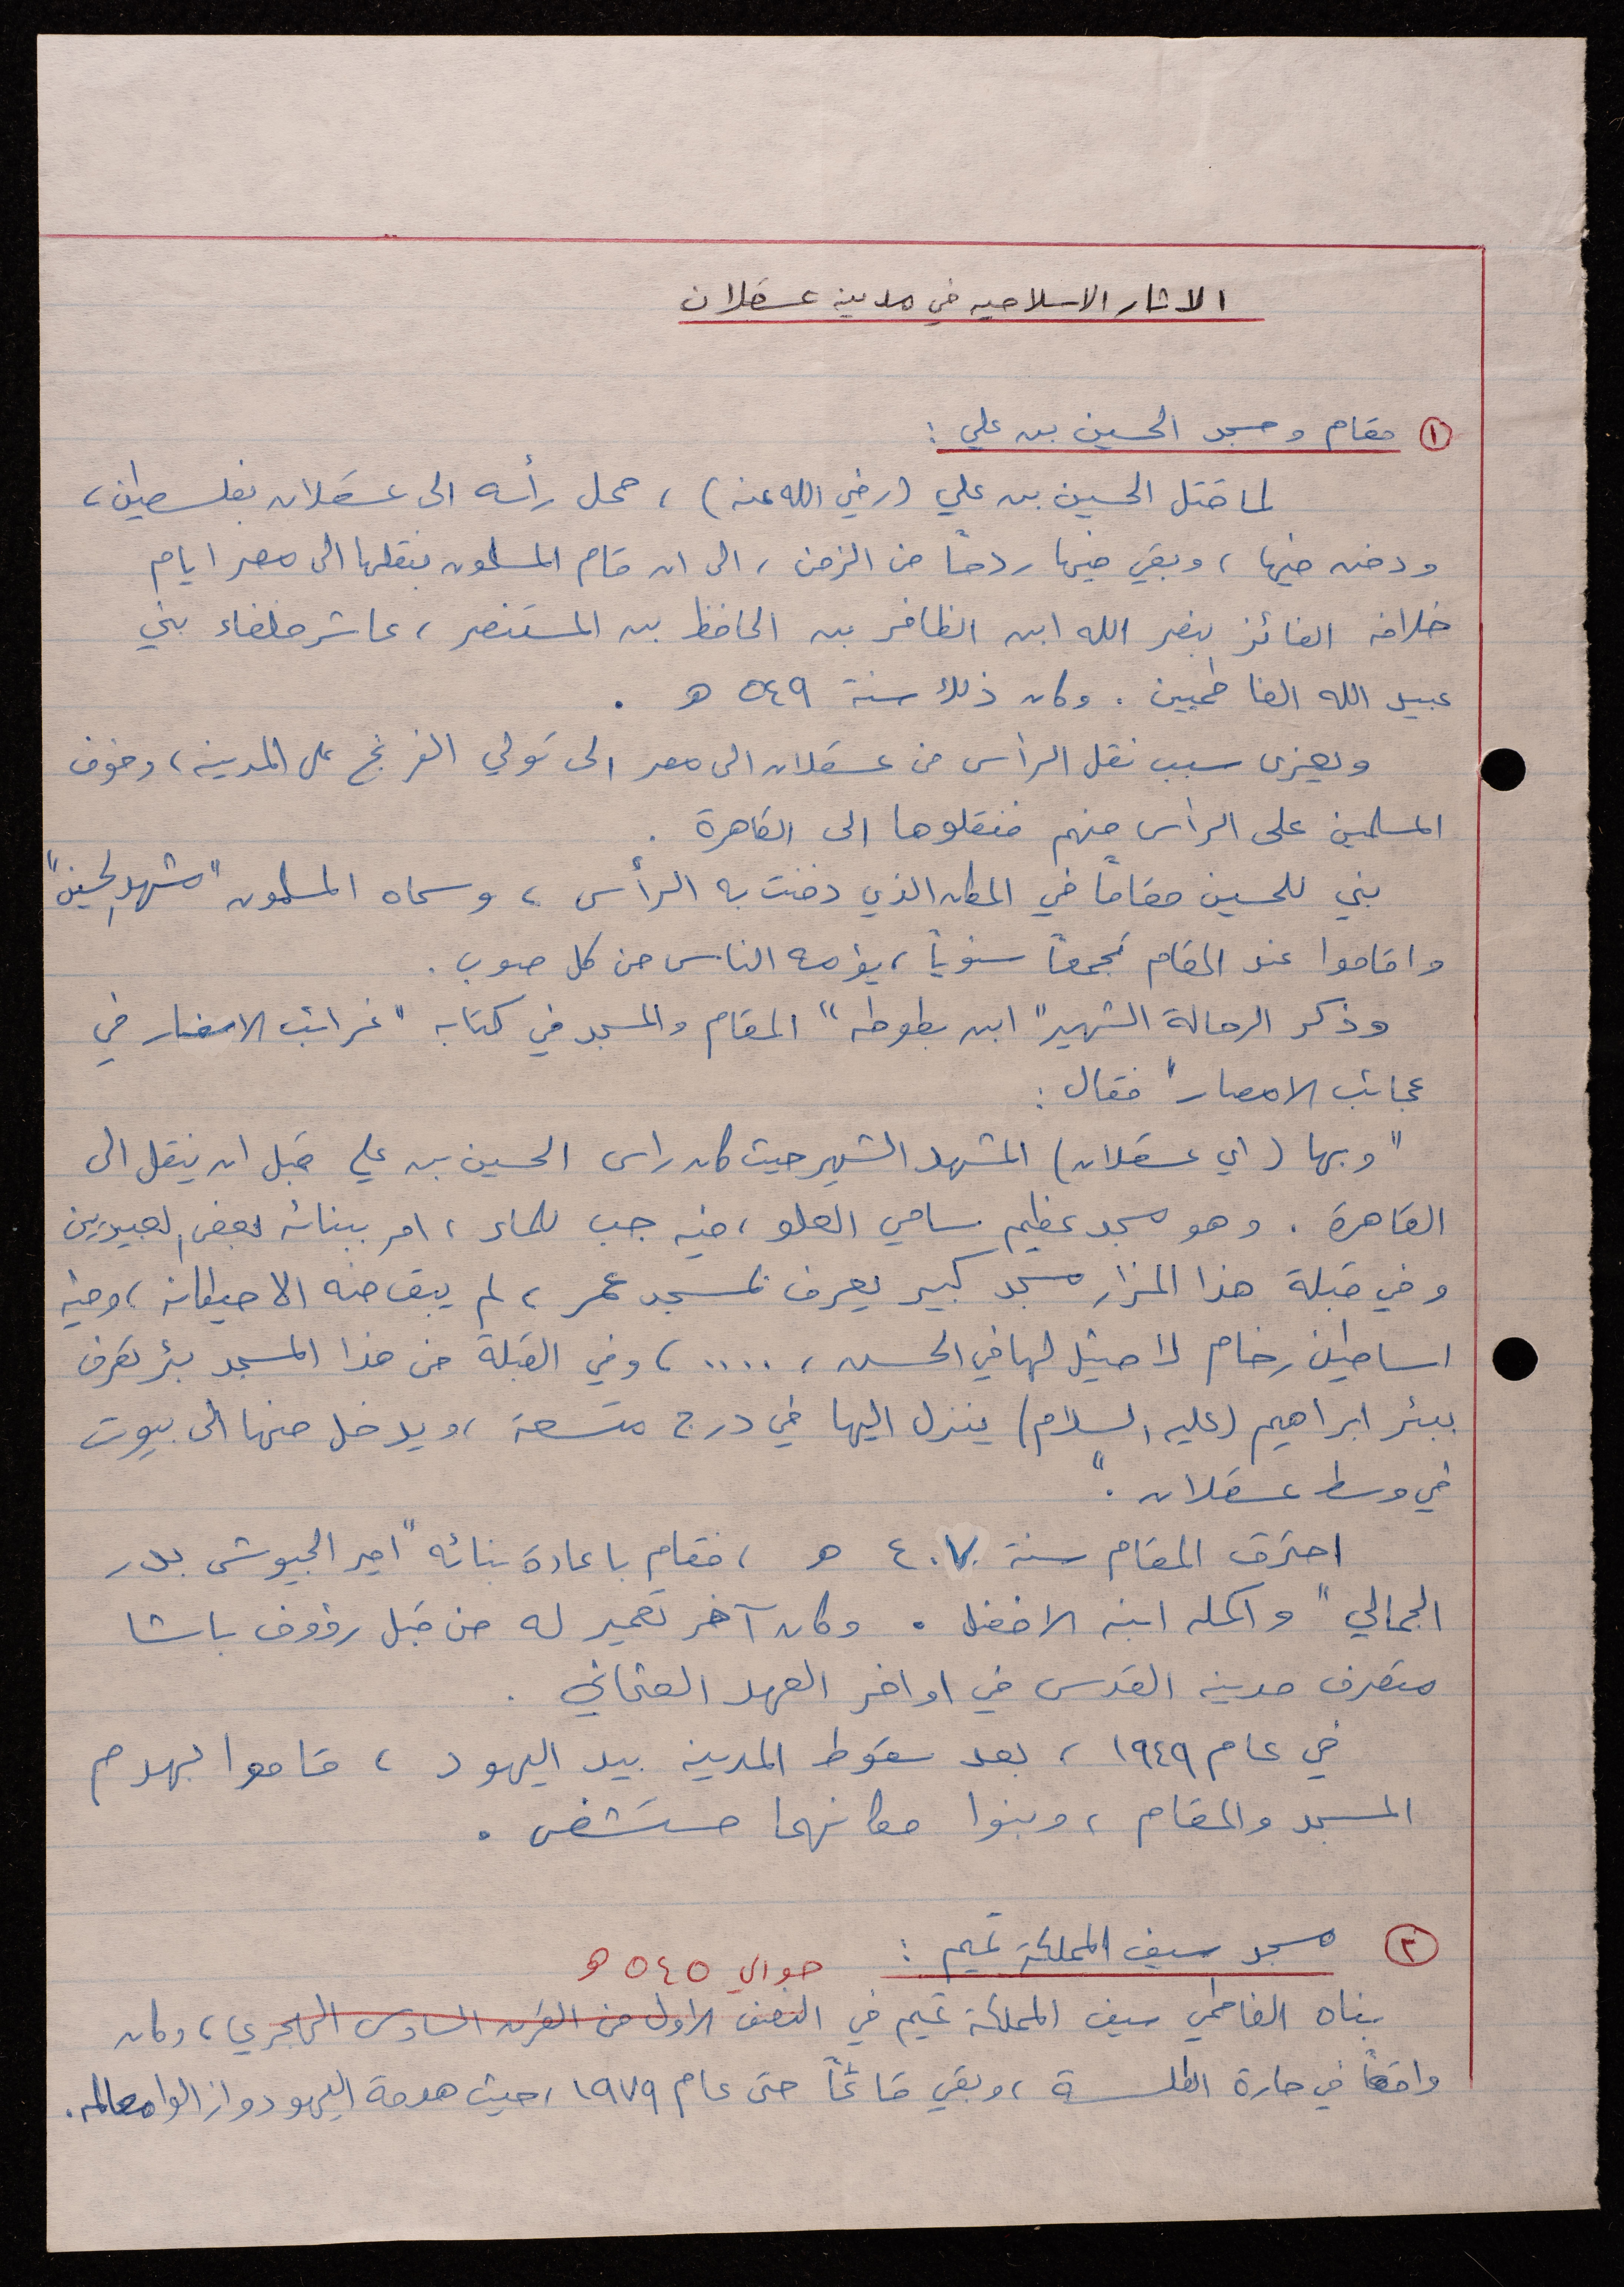 الاثار الاسلاميه في مدينه عسقلان
① مقام ومسجد الحسين بن علي :
لما قتل الحسين بن علي (رضي الله عنه) ، حمل رأسه الى عسقلان بفلسطين ،
ودفن فيها ، وبقي فيها ردحاً من الزمن ، الى ان قام المسلمون بنقلها الى مصر ايام
خلافه الفائز بنصر الله ابن الظافر بن الحافظ بن المستنصر ، عاشر خلفاء بني
عبيد الله الفاطميين . وكان ذلك سنة ٥٤٩ ه .
ويعزى سبب نقل الرأس من عسقلان الى مصر الى تولي الفرنج على المدينه ، وخوف
المسلمين على الرأس منهم فنقلوها الى القاهرة .
بني للحسين مقاماً في المكان الذي دفنت به الرأس ، وسماه المسلمون "مشهد الحسين"
واقاموا عند المقام تجمعاً سنوياً ، يؤمه الناس من كل صوب .
وذكر الرحالة الشهير "ابن بطوطه" المقام والمسجد في كتابه "غرائب الاسفار في
عجائب الامصار" فقال :
"وبها (اي عسقلان) المشهد الشهير حيث كان راس الحسين بن علي قبل ان ينقل الى
القاهرة . وهو مسجد عظيم سامي العلو ، فيه جب للماء ، امر ببنائه بعض العبيديين
وفي قبلة هذا المزار مسجد كبير يعرف بمسجد عمر ، لم يبق منه الا حيطانه ، وفيه
اساطين رخام لا مثيل لها في الحسن ، .... ، وفي القبلة من هذا المسجد بئر تعرف
ببئر ابراهيم (عليه السلام) ينزل اليها في درج متسعة ، ويدخل منها الى بيوت
في وسط عسقلان ."
احترق المقام سنة ٤٠٧ ه ، فقام باعادة بنائه "امير الجيوش بدر
الجمالي" واكمله ابنه الافضل . وكان آخر تعمير له من قبل رؤوف باشا
متصرف مدينه القدس في اواخر العهد العثماني .
في عام ١٩٤٩ ، بعد سقوط المدينه بيد اليهود ، قاموا بهدم
المسجد والمقام ، وبنوا مكانهما مستشفى .
② مسجد سيف المملكة تميم :
حوالي ٥٤٥ ه
بناه الفاطمي سيف المملكة تميم في النصف الاول من القرن السادس الهجري ، وكان
واقعاً في حارة الطلسة ، وبقي قائماً حتى عام ١٩٧٩ ، حيث هدمة اليهود وازالوا معالمه .